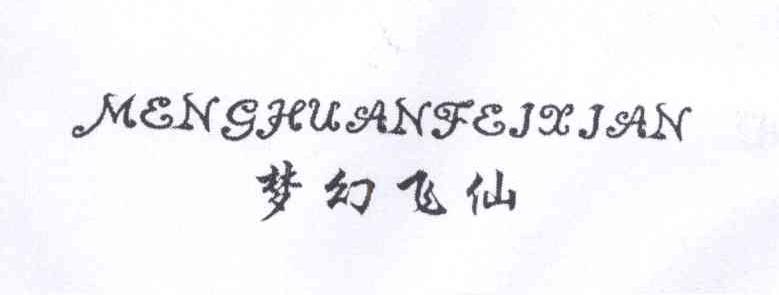 MENGHUANFEIXIAN
梦幻飞仙